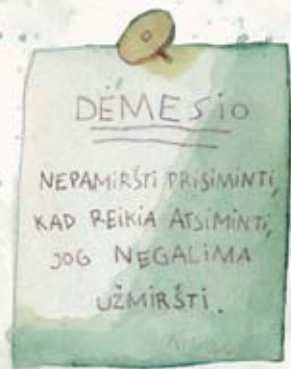 DĖMESIO
NEPAMIRŠTI PRISIMINTI,
KAD REIKIA ATSIMINTI,
JOG NEGALIMA
UŽMIRŠTI.